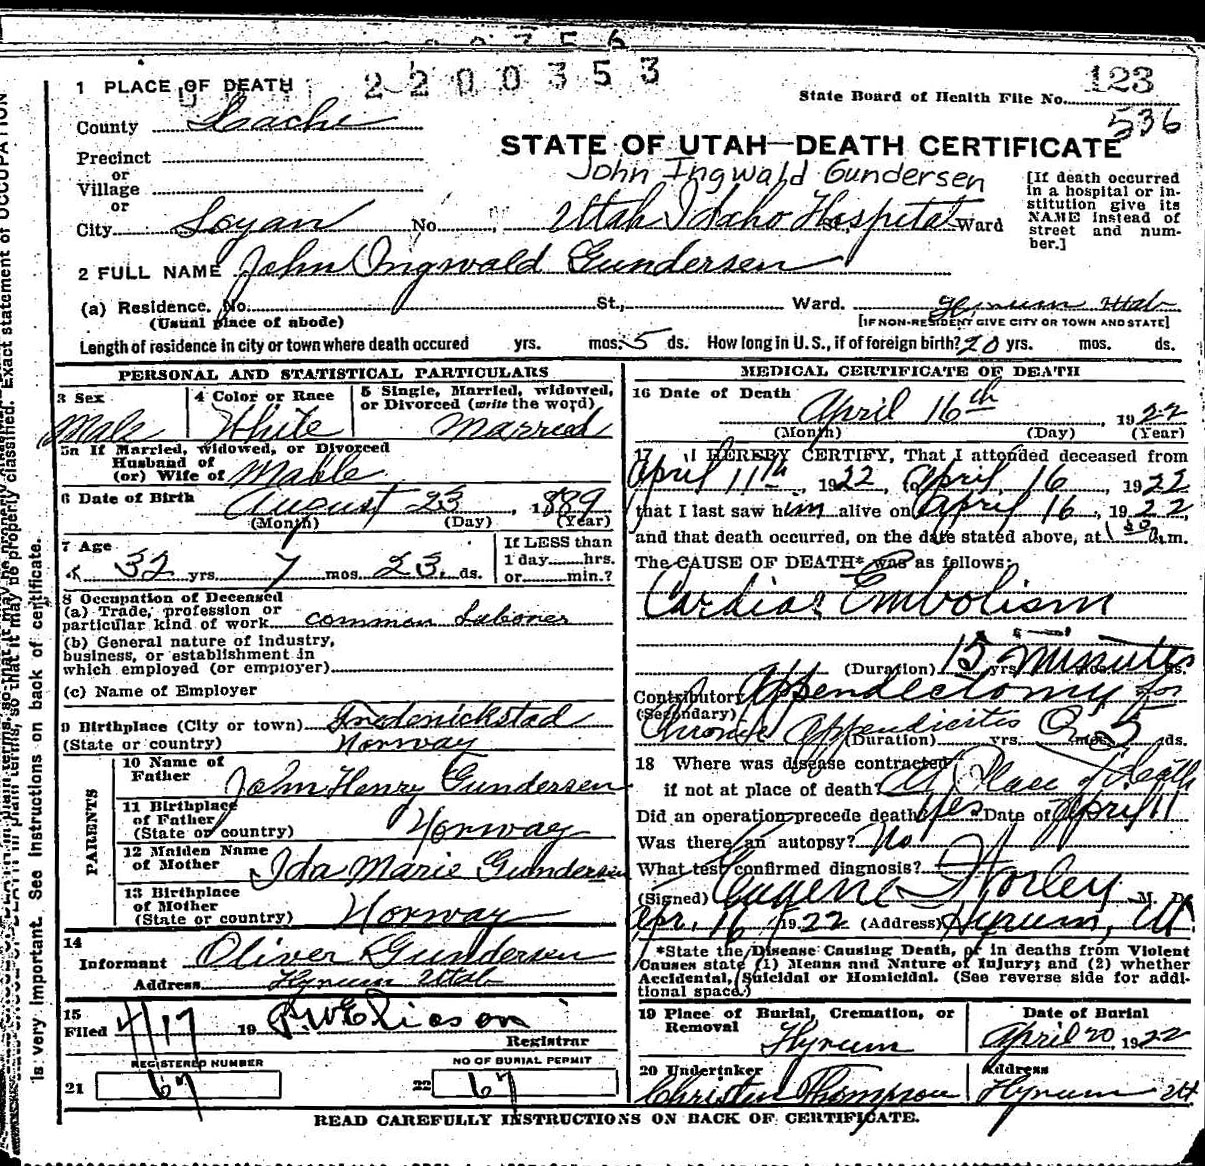 2200353
1 PLACE OF DEATH
123
State Board of Health File No.
536
County Cache
STATE OF UTAH—DEATH CERTIFICATE
Precinct
or
Village
or
John Ingwald Gundersen
[If death occurred in a hospital or institution give its NAME instead of street and number.]
City Logan No. Utah Idaho Hospital St., Ward
2 FULL NAME John Ingwald Gundersen
(a) Residence. No. St., Ward. Hyrum Utah
(Usual place of abode) [IF NON-RESIDENT GIVE CITY OR TOWN AND STATE]
Length of residence in city or town where death occured yrs. mos. 5 ds. How long in U.S., if of foreign birth? 20 yrs. mos. ds.
PERSONAL AND STATISTICAL PARTICULARS
3 Sex Male
4 Color or Race White
5 Single, Married, widowed, or Divorced (write the word) Married
5a If Married, widowed, or Divorced
Husband of
(or) Wife of Mable
6 Date of Birth August 23, 1889
(Month) (Day) (Year)
7 Age 32 yrs. 7 mos. 23 ds.
If LESS than 1 day hrs. or min.?
8 Occupation of Deceased
(a) Trade, profession or
particular kind of work common Laborer
(b) General nature of industry,
business, or establishment in
which employed (or employer)
(c) Name of Employer
9 Birthplace (City or town) Frederickstad
(State or country) Norway
PARENTS
10 Name of Father John Henry Gundersen
11 Birthplace of Father (State or country) Norway
12 Maiden Name of Mother Ida Marie Gundersen
13 Birthplace of Mother (State or country) Norway
14
Informant Oliver Gundersen
Address Hyrum Utah
15
Filed 4/17 19 P.W. Eliason
Registrar
REGISTERED NUMBER NO OF BURIAL PERMIT
21 67 22 67
MEDICAL CERTIFICATE OF DEATH
16 Date of Death April 16th, 1922
(Month) (Day) (Year)
17 I HEREBY CERTIFY, That I attended deceased from
April 11th, 1922, to April 16, 1922
that I last saw him alive on April 16, 1922,
and that death occurred, on the date stated above, at a.m.
The CAUSE OF DEATH* was as follows:
Cardiac Embolism
(Duration) 15 yrs. minutes mos. ds.
Contributory Appendectomy for
(Secondary)
Chronic Appendicites
(Duration) yrs. mos. 5 ds.
18 Where was disease contracted
if not at place of death? At Place of death
Did an operation precede death? Yes Date of April 11
Was there an autopsy? No
What test confirmed diagnosis?
(Signed) Eugene Worley M. D.
Apr. 16 1922 (Address) Hyrum, Ut.
*State the Disease Causing Death, or in deaths from Violent
Causes state (1) Means and Nature of Injury; and (2) whether
Accidental, Suicidal or Homicidal. (See reverse side for additional space.)
19 Place of Burial, Cremation, or Removal Hyrum
Date of Burial April 20, 1922
20 Undertaker Christen Thompson
Address Hyrum Ut
READ CAREFULLY INSTRUCTIONS ON BACK OF CERTIFICATE.
is very important. See instructions on back of certificate.
Exact statement of OCCUPATION